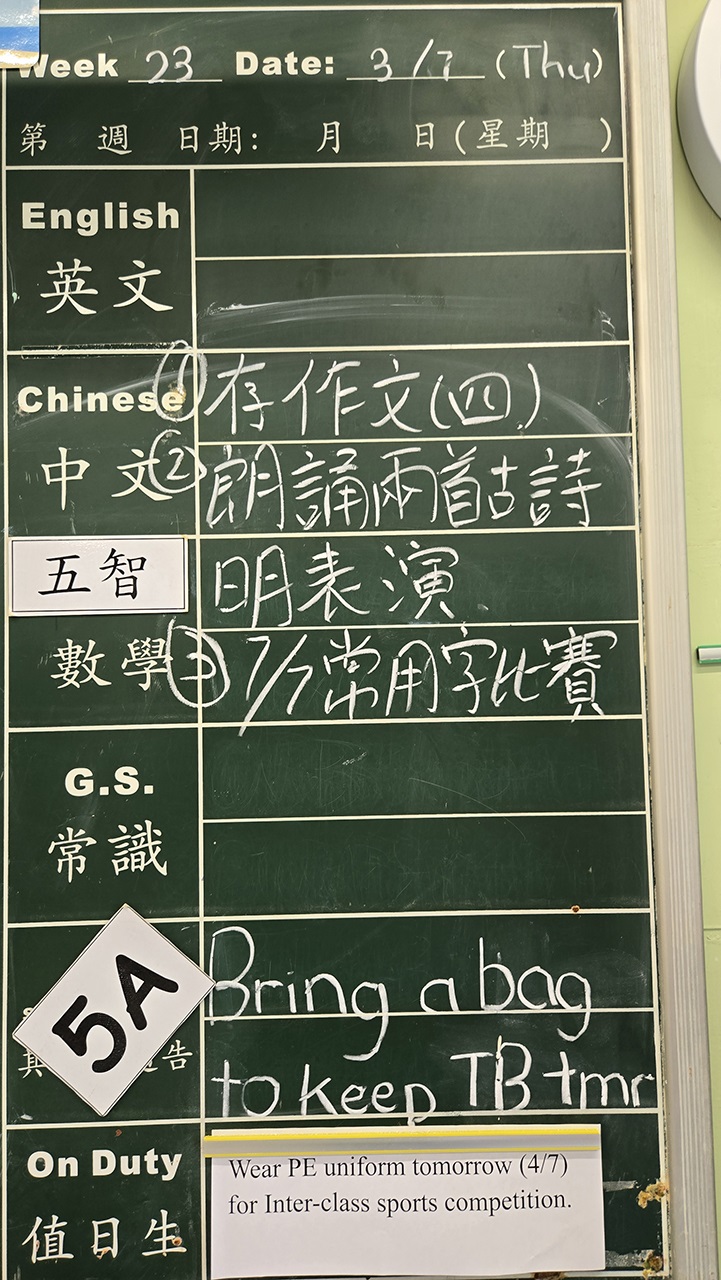 Week 23 Date: 3/7 (Thu)
第 週 日期: 月 日(星期 )
English
英文
Chinese ① 存作文(四)
中文 ② 朗誦兩首古詩
五智 明表演
數學 ③ 7/7常用字比賽
G.S.
常識
5A
Bring a bag
to keep TB tmr
其 告
On Duty
值日生
Wear PE uniform tomorrow (4/7)
for Inter-class sports competition.